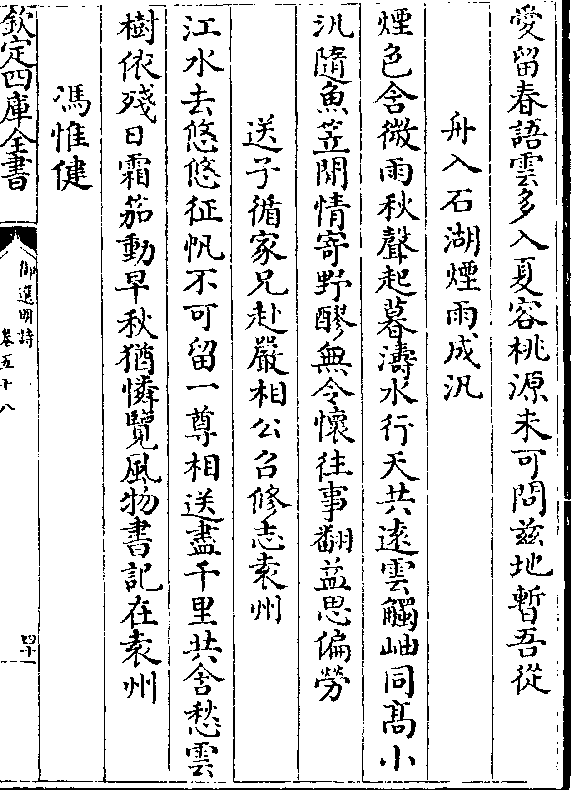 愛留春語雲多入夏容桃源未可問兹地暫吾從
舟入石湖煙雨成汎
煙色含微雨秋聲起暮濤水行天共逺雲觸岫同髙小
汎隨魚笠閒情寄野醪無令懷往事翻益思偏勞
送子循家兄赴嚴相公召修志袁州
江水去悠悠征帆不可留一尊相送盡千里共含愁雲
樹依殘日霜笳動早秋猶憐覽風物書記在袁州
馮惟健
欽定四庫全書
御選明詩
卷五十八
四十一